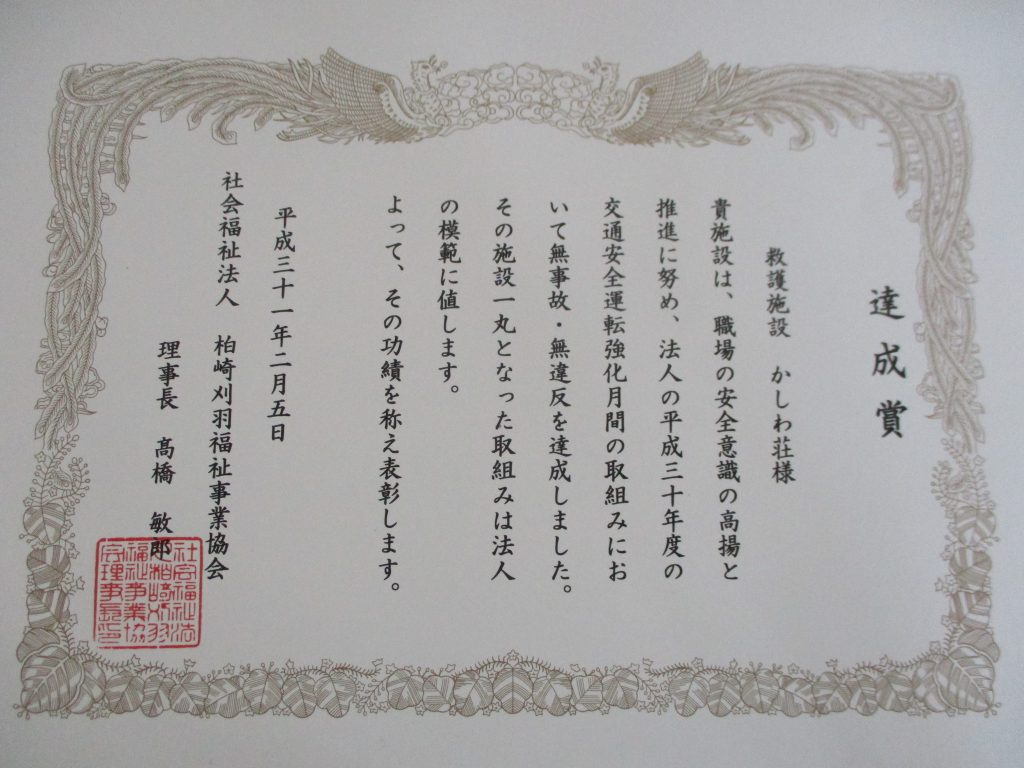 達成賞
救護施設　かしわ荘様
貴施設は、職場の安全意識の高揚と
推進に努め、法人の平成三十年度の
交通安全運転強化月間の取組みにお
いて無事故・無違反を達成しました。
その施設一丸となった取組みは法人
の模範に値します。
よって、その功績を称え表彰します。
平成三十一年二月五日
社会福祉法人　柏崎刈羽福祉事業協会
理事長　高橋　敏郎
社会福祉法
人柏崎刈羽
福祉事業協
会理事長印